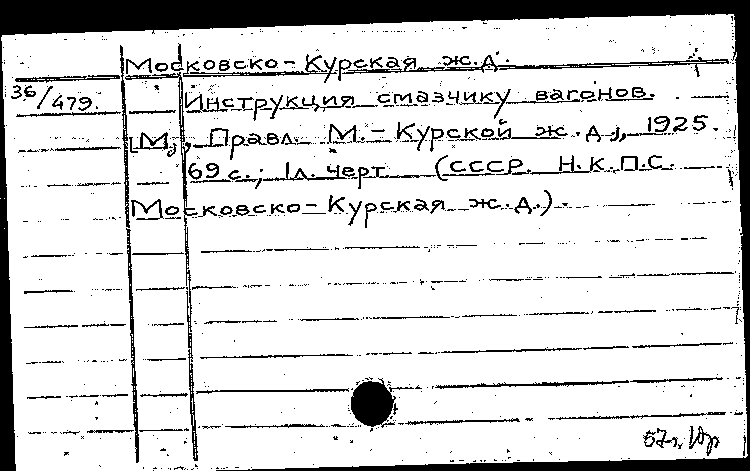 Московско-Курская ж.д.
36/479. Инструкция смазчику вагонов.
[М.], Правл. М.-Курской ж.д., 1925.
69 с.; 1 л. черт. (СССР. Н.К.П.С.
Московско-Курская ж.д.).